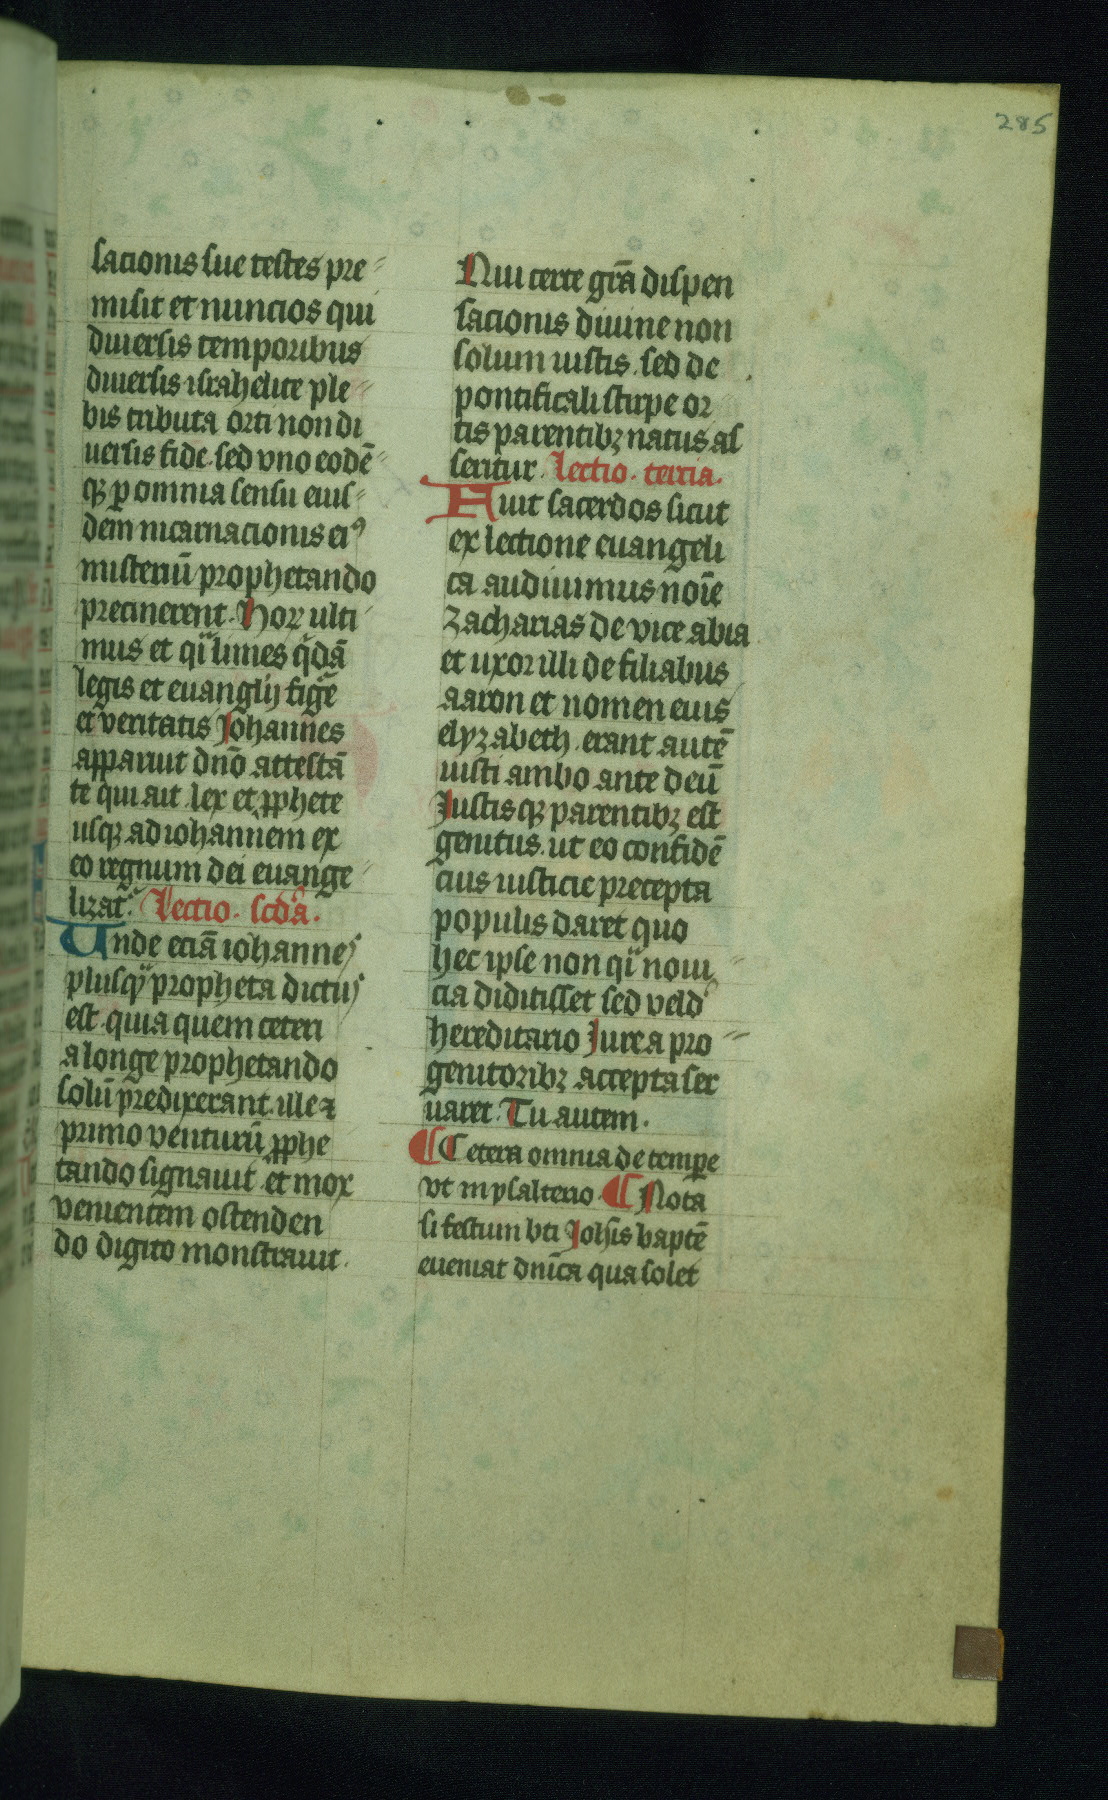 285
sacionis sue testes pre
misit et nuncios qui
diuersis temporibus
diuersis israhelite ple
bis tributa orti non di
uersis fide. sed vno eodē
qꝫ ꝑ omnia sensu eius
dem incarnacionis eiꝰ
misteriū prophetando
precinerent. Hoꝝ ulti
mus et qͣi limes qͥdā
legis et euanglij figͬe
et veritatis Johannes
apparuit dn̄o attestā
te qui ait lex et ꝓphete
usqꝫ ad iohannem ex
eo regnum dei euange
lizat᷑. Lectio. scd̄a.
Unde eciā iohannes
plusqͣꝫ propheta dictus
est. quia quem ceteri
a longe prophetando
solū predixerant. ille ⁊
primo venturū ꝓphe
tando signauit et mox
venientem ostenden
do digito monstrauit.
Qui certe grā dispen
sacionis diuine non
solum iustis. sed de
pontificali stirpe or
tis parentibꝫ natus as
seritur. Lectio. tercia.
Fuit sacerdos sicut
ex lectione euangeli
ca audiuimus noīe
Zacharias de vice abia
et uxor illi de filiabus
aaron et nomen eius
elyzabeth. erant autē
iusti ambo ante deū
Justis qꝫ parentibꝫ est
genitus. ut eo confidē
cius iusticie precepta
populis daret quo
hec ipse non qͣi noui
cia diditisset sed veld᷑
hereditario Jure a pro
genitoribꝫ accepta ser
uaret. Tu autem.
¶ Cetera omnia de tempe
vt in psalterio. ¶ Nota
si festum bti Johīs baptē
eueniat dnīca qua solet